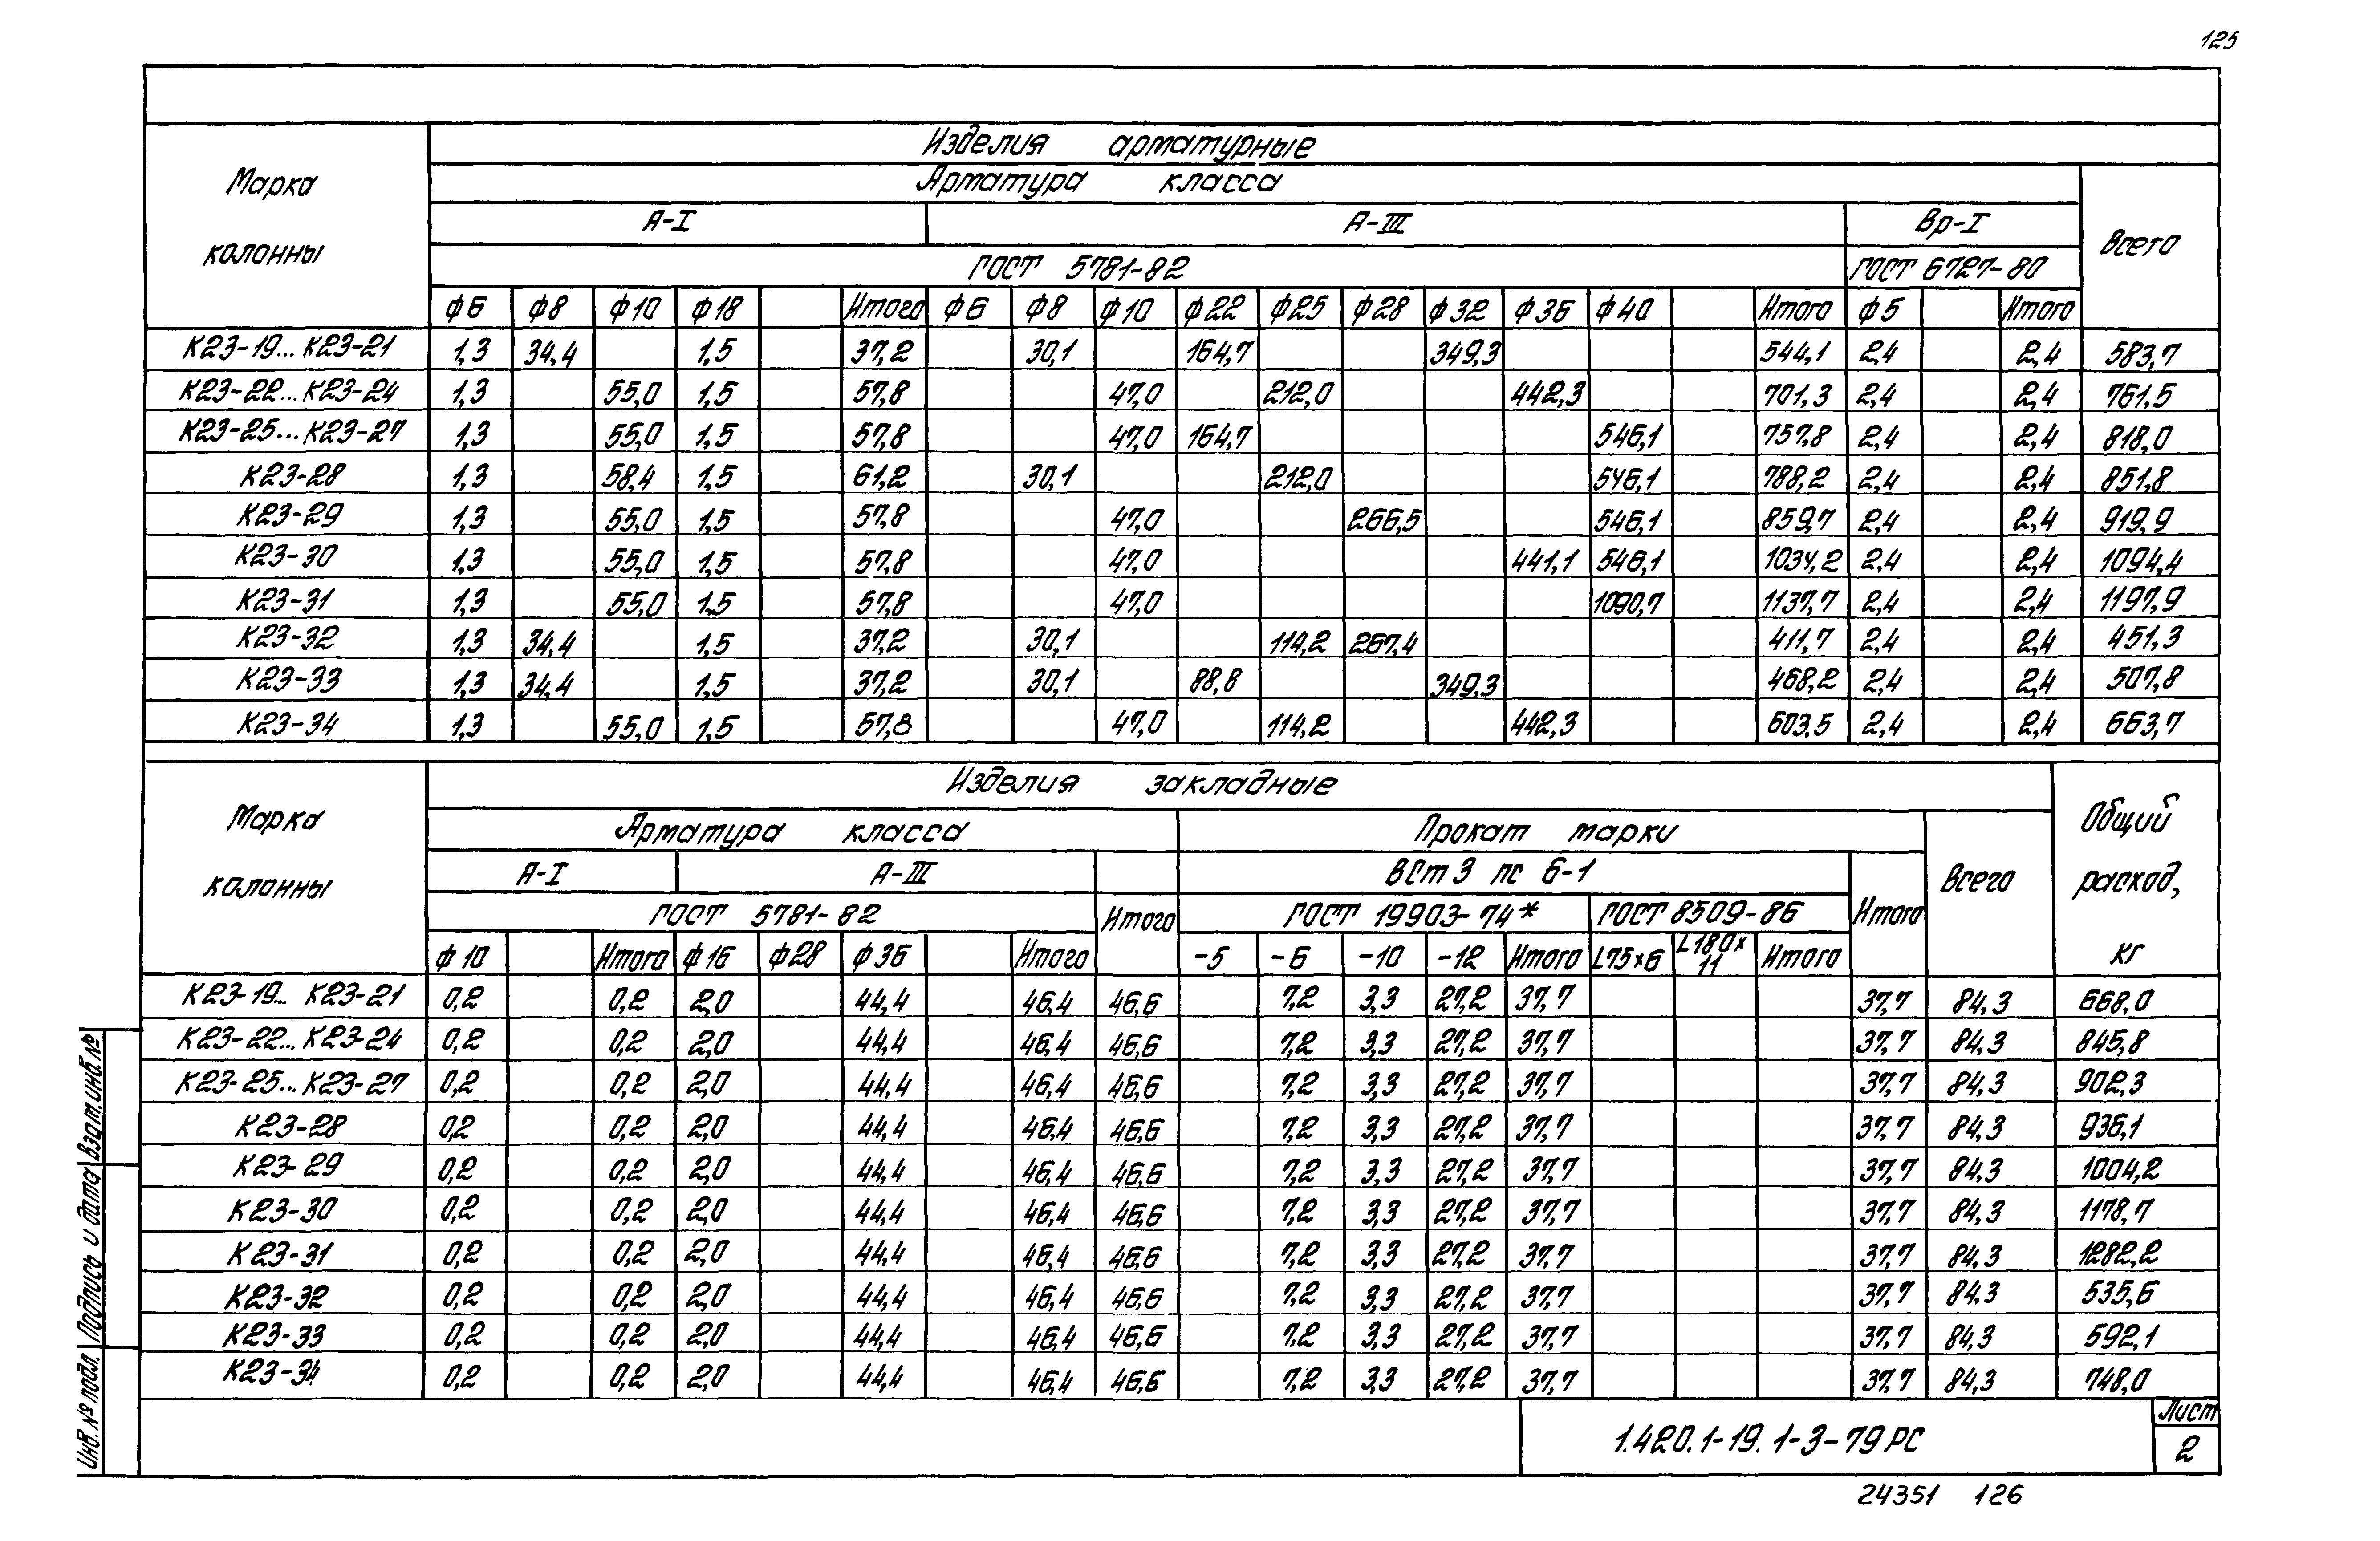 125
Изделия арматурные
Марка колонны
Арматура класса
Всего
А-I А-III Вр-I
ГОСТ 5781-82 ГОСТ 6727-80
ф6 ф8 ф10 ф18 Итого ф6 ф8 ф10 ф22 ф25 ф28 ф32 ф36 ф40 Итого ф5 Итого
К23-19... К23-21 1,3 34,4 1,5 37,2 30,1 164,7 349,3 544,1 2,4 2,4 583,7
К23-22... К23-24 1,3 55,0 1,5 57,8 47,0 212,0 442,3 701,3 2,4 2,4 761,5
К23-25... К23-27 1,3 55,0 1,5 57,8 47,0 164,7 546,1 757,8 2,4 2,4 818,0
К23-28 1,3 58,4 1,5 61,2 30,1 212,0 546,1 788,2 2,4 2,4 851,8
К23-29 1,3 55,0 1,5 57,8 47,0 266,5 546,1 859,7 2,4 2,4 919,9
К23-30 1,3 55,0 1,5 57,8 47,0 441,1 546,1 1034,2 2,4 2,4 1094,4
К23-31 1,3 55,0 1,5 57,8 47,0 1090,7 1137,7 2,4 2,4 1197,9
К23-32 1,3 34,4 1,5 37,2 30,1 114,2 267,4 411,7 2,4 2,4 451,3
К23-33 1,3 34,4 1,5 37,2 30,1 88,8 349,3 468,2 2,4 2,4 507,8
К23-34 1,3 55,0 1,5 57,8 47,0 114,2 442,3 603,5 2,4 2,4 663,7
Изделия закладные
Марка колонны
Арматура класса Прокат марки
Всего
Общий расход, кг
А-I А-III ВСт3 пс 6-1
ГОСТ 5781-82 Итого ГОСТ 19903-74* ГОСТ 8509-86 Итого
ф10 Итого ф16 ф28 ф36 Итого -5 -6 -10 -12 Итого L75×6 L180×11 Итого
К23-19... К23-21 0,2 0,2 2,0 44,4 46,4 46,6 7,2 3,3 27,2 37,7 37,7 84,3 668,0
К23-22... К23-24 0,2 0,2 2,0 44,4 46,4 46,6 7,2 3,3 27,2 37,7 37,7 84,3 845,8
К23-25... К23-27 0,2 0,2 2,0 44,4 46,4 46,6 7,2 3,3 27,2 37,7 37,7 84,3 902,3
К23-28 0,2 0,2 2,0 44,4 46,4 46,6 7,2 3,3 27,2 37,7 37,7 84,3 936,1
К23-29 0,2 0,2 2,0 44,4 46,4 46,6 7,2 3,3 27,2 37,7 37,7 84,3 1004,2
К23-30 0,2 0,2 2,0 44,4 46,4 46,6 7,2 3,3 27,2 37,7 37,7 84,3 1178,7
К23-31 0,2 0,2 2,0 44,4 46,4 46,6 7,2 3,3 27,2 37,7 37,7 84,3 1282,2
К23-32 0,2 0,2 2,0 44,4 46,4 46,6 7,2 3,3 27,2 37,7 37,7 84,3 535,6
К23-33 0,2 0,2 2,0 44,4 46,4 46,6 7,2 3,3 27,2 37,7 37,7 84,3 592,1
К23-34 0,2 0,2 2,0 44,4 46,4 46,6 7,2 3,3 27,2 37,7 37,7 84,3 748,0
Инв. № подл. Подпись и дата Взам. инв. №
1.420.1-19.1-3-79РС
Лист
2
24351 126